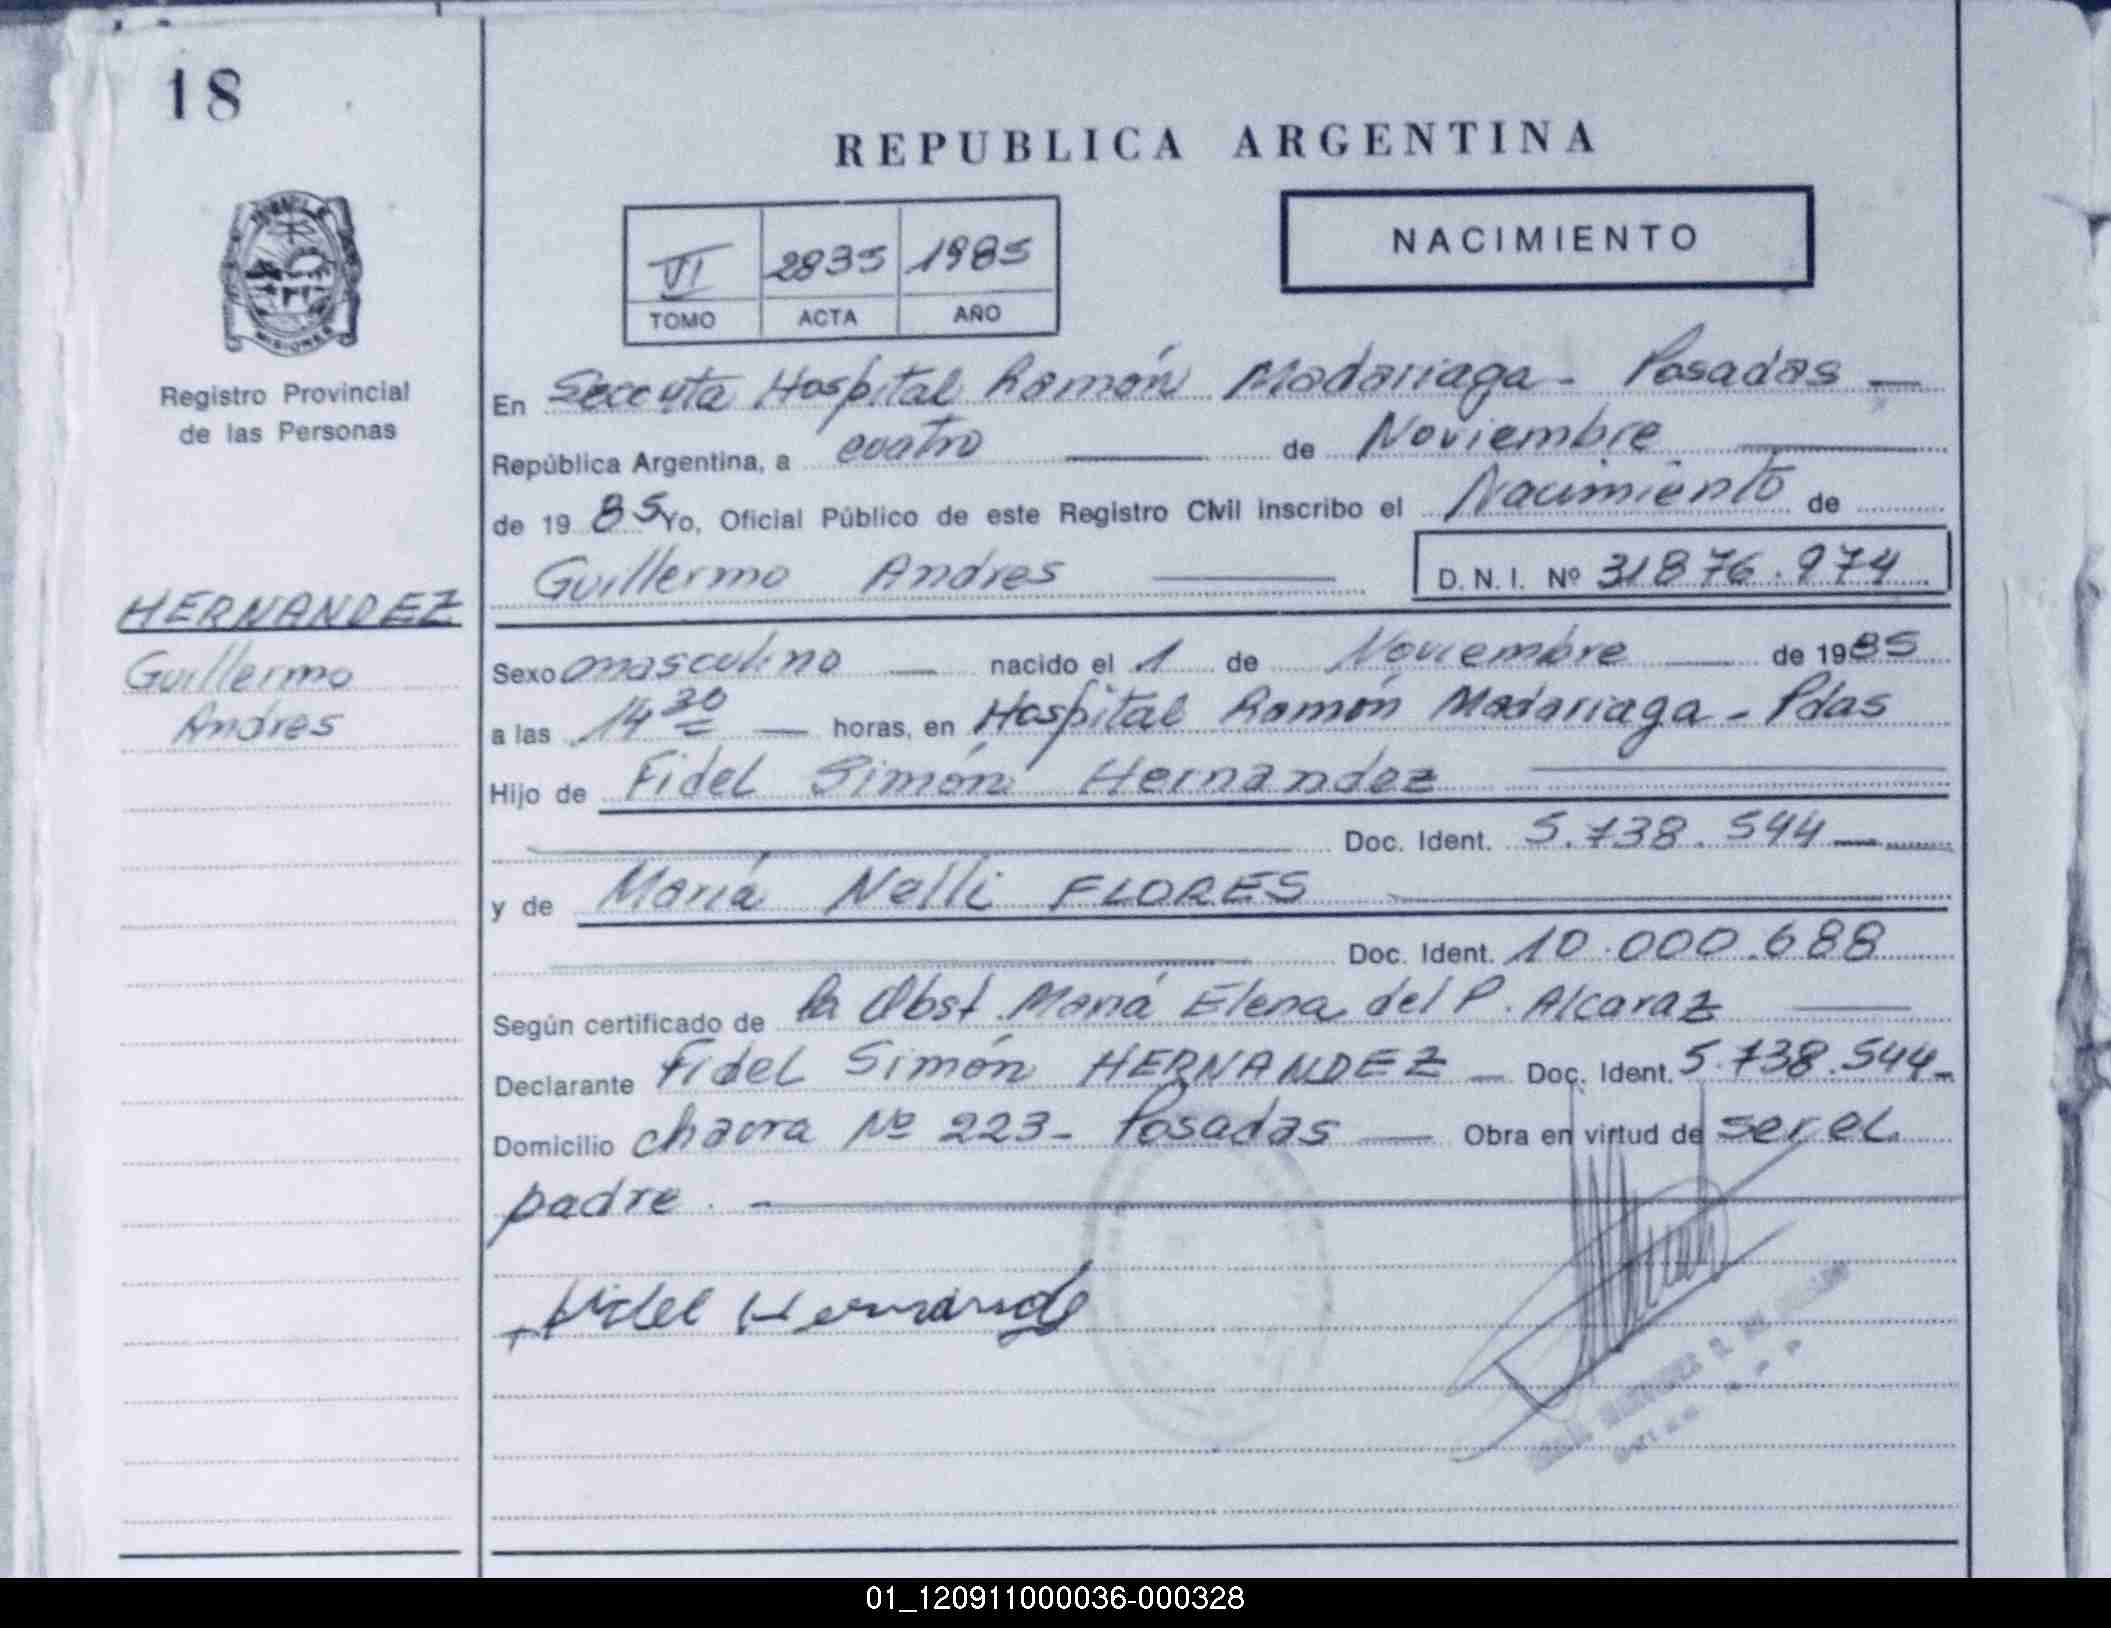 18
REPUBLICA ARGENTINA
VI 2835 1985
TOMO ACTA AÑO
NACIMIENTO
MISIONES
Registro Provincial
de las Personas
HERNANDEZ
Guillermo
Andres
En Hospital Ramón Madariaga - Posadas
República Argentina, a cuatro de Noviembre
de 1985 Yo, Oficial Público de este Registro Civil inscribo el Nacimiento de
Guillermo Andres D. N. I. Nº 31876.974
Sexo masculino nacido el 1 de Noviembre de 1985
a las 14 30 horas, en Hospital Ramón Madariaga - Pdas
Hijo de Fidel Simón Hernandez
Doc. Ident. 5.738.544
y de María Nelli FLORES
Doc. Ident. 10.000.688
Según certificado de la Obst. María Elena del P. Alcaraz
Declarante Fidel Simón HERNANDEZ - Doc. Ident. 5.738.544-
Domicilio chacra Nº 223- Posadas Obra en virtud de ser el
padre.
Fidel Hernandez
01_120911000036-000328